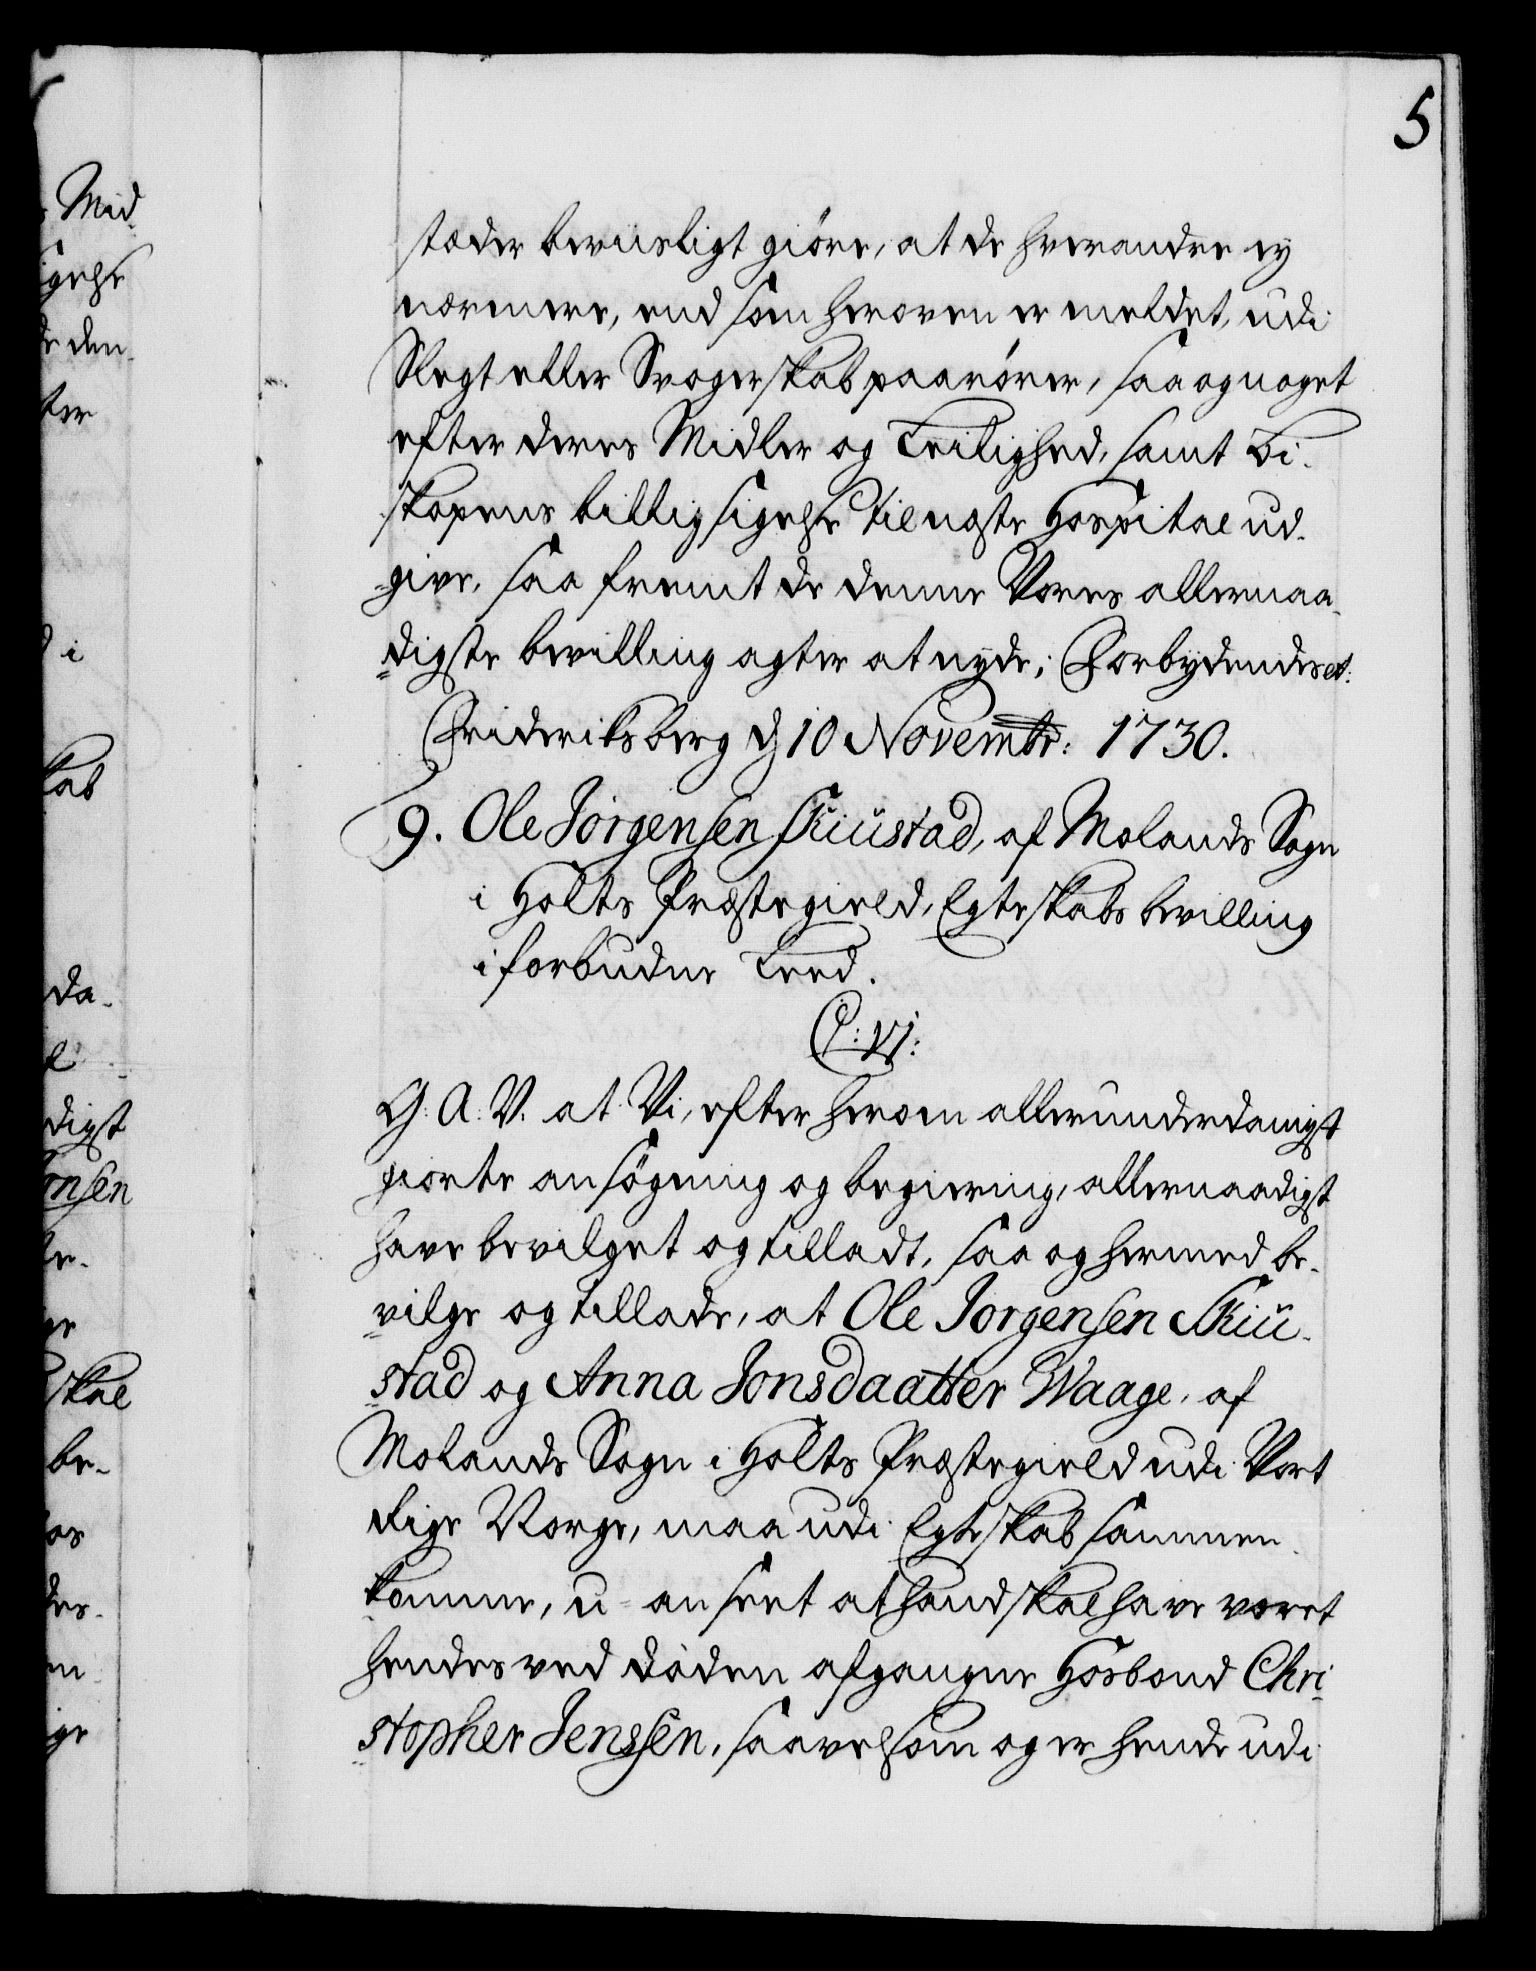 5
Mid-
igelse
de den-
ter
d i
kab
da-
digst
onsen
be-
ge
skal
be-
des-
ige
stæder beviisligt giöre, at de hverandre ey
nærmere, end som heroven er meldet, udi
Slegt eller Svogerskab paarörer, saa og noget
efter deres Midler og Leilighed, samt Bi-
skopens billig sigelse til neste Hospital ud-
give, saa fremt de denne Vores allernaa-
digste bevilling agter at nyde; Forbydendes et:
Frideriksberg d 10 Novembr: 1730.
9. Ole Jörgensen Skiüstad, af Molands Sogn
i Holts Præstegield, Egteskabs bevilling
i forbudne Leed.
C: VI:
G: A: V. at Vi, efter herom allerunderdanigst
giorte ansögning og begiering, allernaadigst
have bevilget og tilladt, saa og hermed be-
vilge og tillade, at Ole Jorgensen Skiü-
stad og Anna Jonsdaatter Waage, af
Molands Sogn i Holts Præstegield udi Vort
Rige Norge, maa udi Egteskab sammen-
komme, u-anseet at hand skal have været
hendes ved döden afgangne Hosbond Chri-
stopher Jenssen, saavelsom og er hende udi